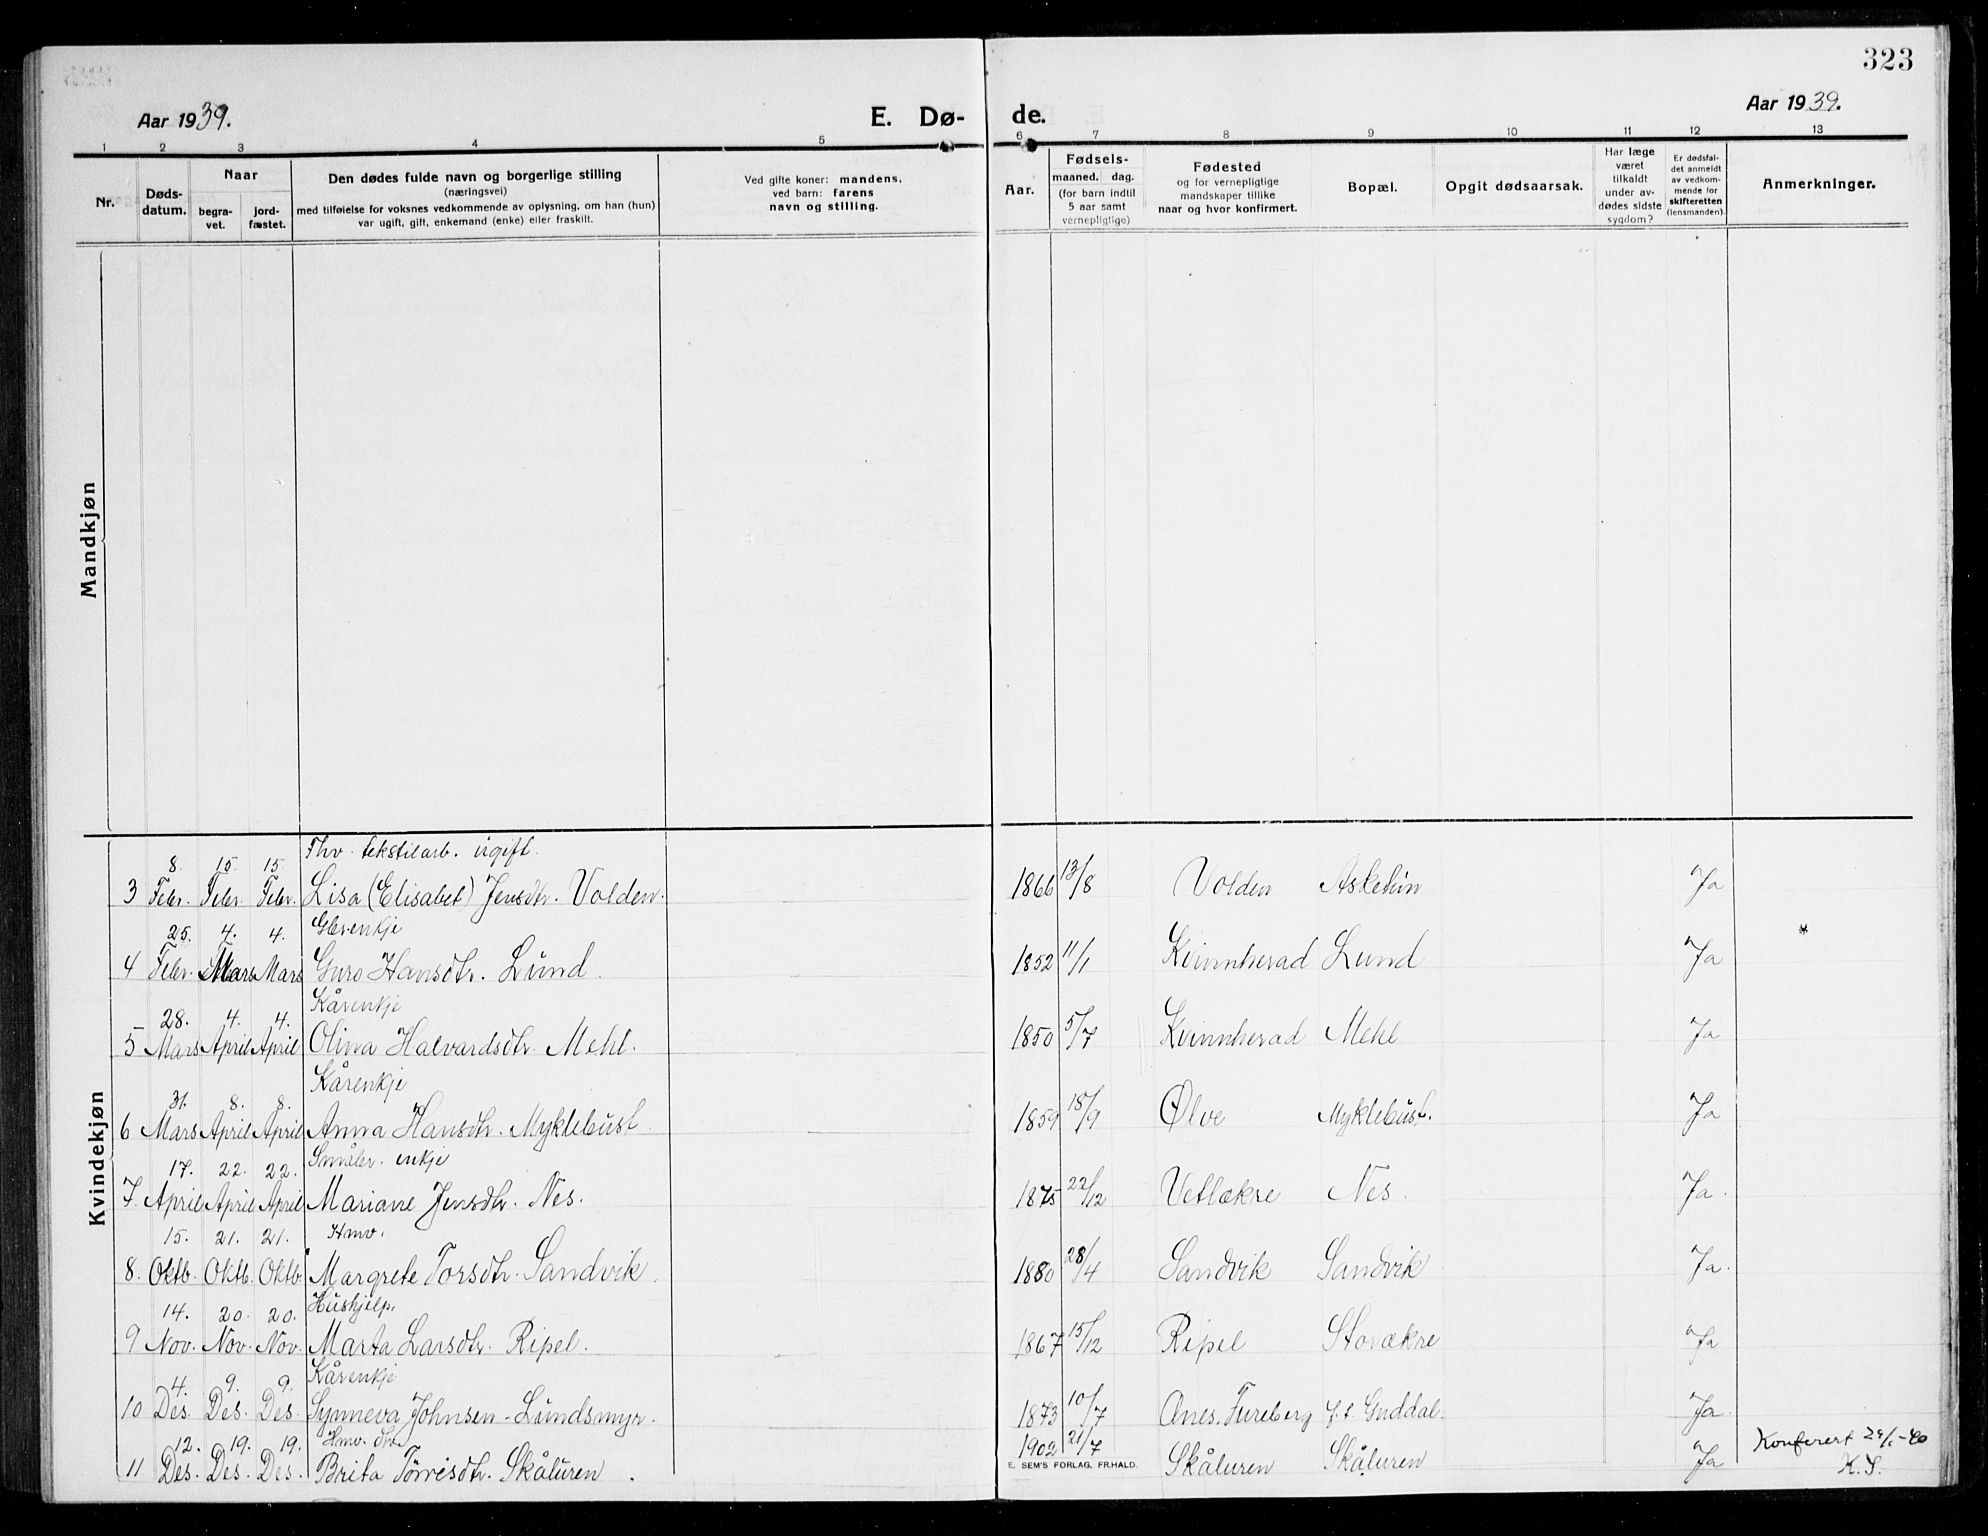 323
Aar 1939. E. Dø- de. Aar 1939.
1 2 3 4 5 6 7 8 9 10 11 12 13
Nr.
Døds-
datum.
Naar
begra-
vet.
jord-
fæstet.
Den dødes fulde navn og borgerlige stilling
(næringsvei)
med tilføielse for voksnes vedkommende av oplysning, om han (hun)
var ugift, gift, enkemand (enke) eller fraskilt.
Ved gifte koner: mandens,
ved barn: farens
navn og stilling.
Aar.
Fødsels-
maaned. dag.
(for barn indtil
5 aar samt
vernepligtige)
Fødested
og for vernepligtige
mandskaper tillike
naar og hvor konfirmert.
Bopæl.
Opgit dødsaarsak.
Har læge
været
tilkaldt
under av-
dødes sidste
sygdom?
Er dødsfal-
det anmeldt
av vedkom-
mende for
skifteretten
(lensmanden).
Anmerkninger.
Mandkjøn
Kvindekjøn
Fhv. tekstilarb. ugift.
8. 15. 15.
3 Febr. Febr. Febr. Lisa (Elisabet) Jensdtr. Volden. 1866 13/8 Volden Ja
25. 4. 4. Gbr.enkje
4 Febr. Mars Mars Guro Hansdtr. Lund. 1852 11/1 Kvinnherad Lund Ja
28. 4. 4. Kårenkje
5 Mars April April Olina Halvardsdtr. Mehl. 1850 5/7 Kvinnherad Mehl Ja
Kårenkje
31. 8. 8.
6 Mars April April Anna Hansdtr. Myklebust. 1859 15/9 Ølve Myklebust. Ja
17. 22. 22. Småbr. enkje
7. April April April Mariane Jensdtr. Nes. 1875 22/12 Vetlækre Nes. Ja.
15. 21. 21. Hmv.
8. Oktb. Oktb. Oktb. Margrete Torsdtr. Sandvik. 1880 28/4 Sandvik Sandvik Ja.
14. 20. 20. Hushjelp.
9 Nov. Nov. Nov. Marta Larsdtr. Ripel. 1867 15/12 Ripel Storækre Ja
4. 9. 9. Kårenkje
10 Des. Des. Des. Synneva Johnsen - Lundsmyr. 1873 10/7 Anes. Fureberg f. t. Guddal. Ja.
12. 19. 19. Hmv. dtr.
11 Des. Des. Des. Brita Tørrisdtr. Skåluren. 1902 21/7 Skåluren Skåluren Ja Konferert
K.S.
E. SEM'S FORLAG. FR.HALD.